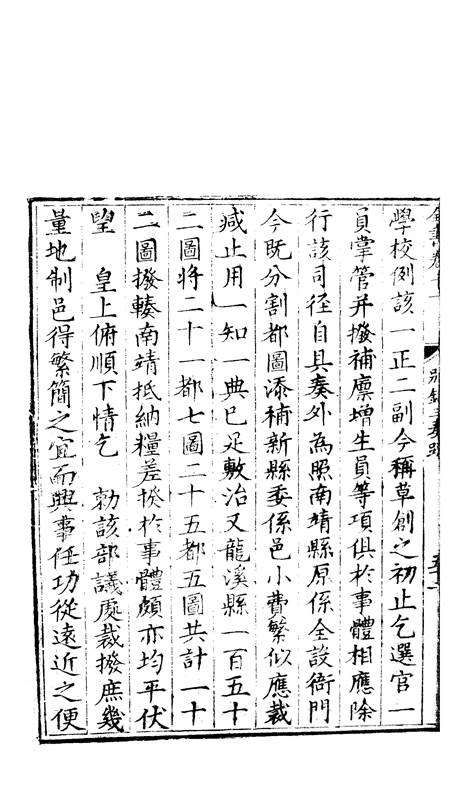 學校例該一正二副今稱草創之初止乞選官一
員掌管并撥補廩增生員等項俱於事體相應除
行該司徑自具奏外為照南靖縣原係全設衙門
今既分割都圖添補新縣委係邑小費繁似應裁
減止用一知一典已足敷治又龍溪縣一百五十
二圖將二十一都七圖二十五都五圖共計一十
二圖撥轃南靖抵納糧差揆於事體頗亦均平伏
望　皇上俯順下情乞　勑該部議處裁撥庶幾
量地制邑得繁簡之宜而興事任功從遠近之便